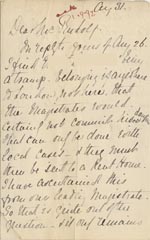 Aug 31.
Dear Mr Rudolf.
In reply to yours of Aug 26.
I find
a tramp. belonging is anywhere
London, not here, that
the Magistrates would
certainly not commit
that can only be done with
local cases - & they must
then be sent to a Rent. Home.
I have ascertained this
from our leading Magistrate.
So that is quite out of the
question - but one remains